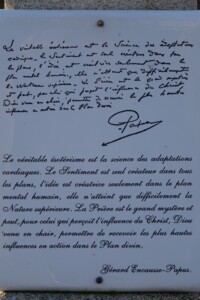 La véritable ésotérisme est la Science des adaptations
cardiaques. Le Sentiment est seul créateur dans tous
les plans, l'idée est créatrice seulement dans le
plan mental humain, elle n'atteint que difficilement
la Nature supérieure. La Prière est le grand mystère
et peut, pour celui qui perçoit l'influence du Christ,
Dieu venu en chair, permettre de recevoir les plus hautes
influences en action dans le Plan divin.
Papus
Le véritable ésotérisme est la science des adaptations
cardiaques. Le Sentiment est seul créateur dans tous
les plans, l'idée est créatrice seulement dans le plan
mental humain, elle n'atteint que difficilement la
Nature supérieure. La Prière est le grand mystère et
peut, pour celui qui perçoit l'influence de Christ, Dieu
venu en chair, permettre de recevoir les plus hautes
influences en action dans le Plan divin.
Gérard Encausse-Papus.